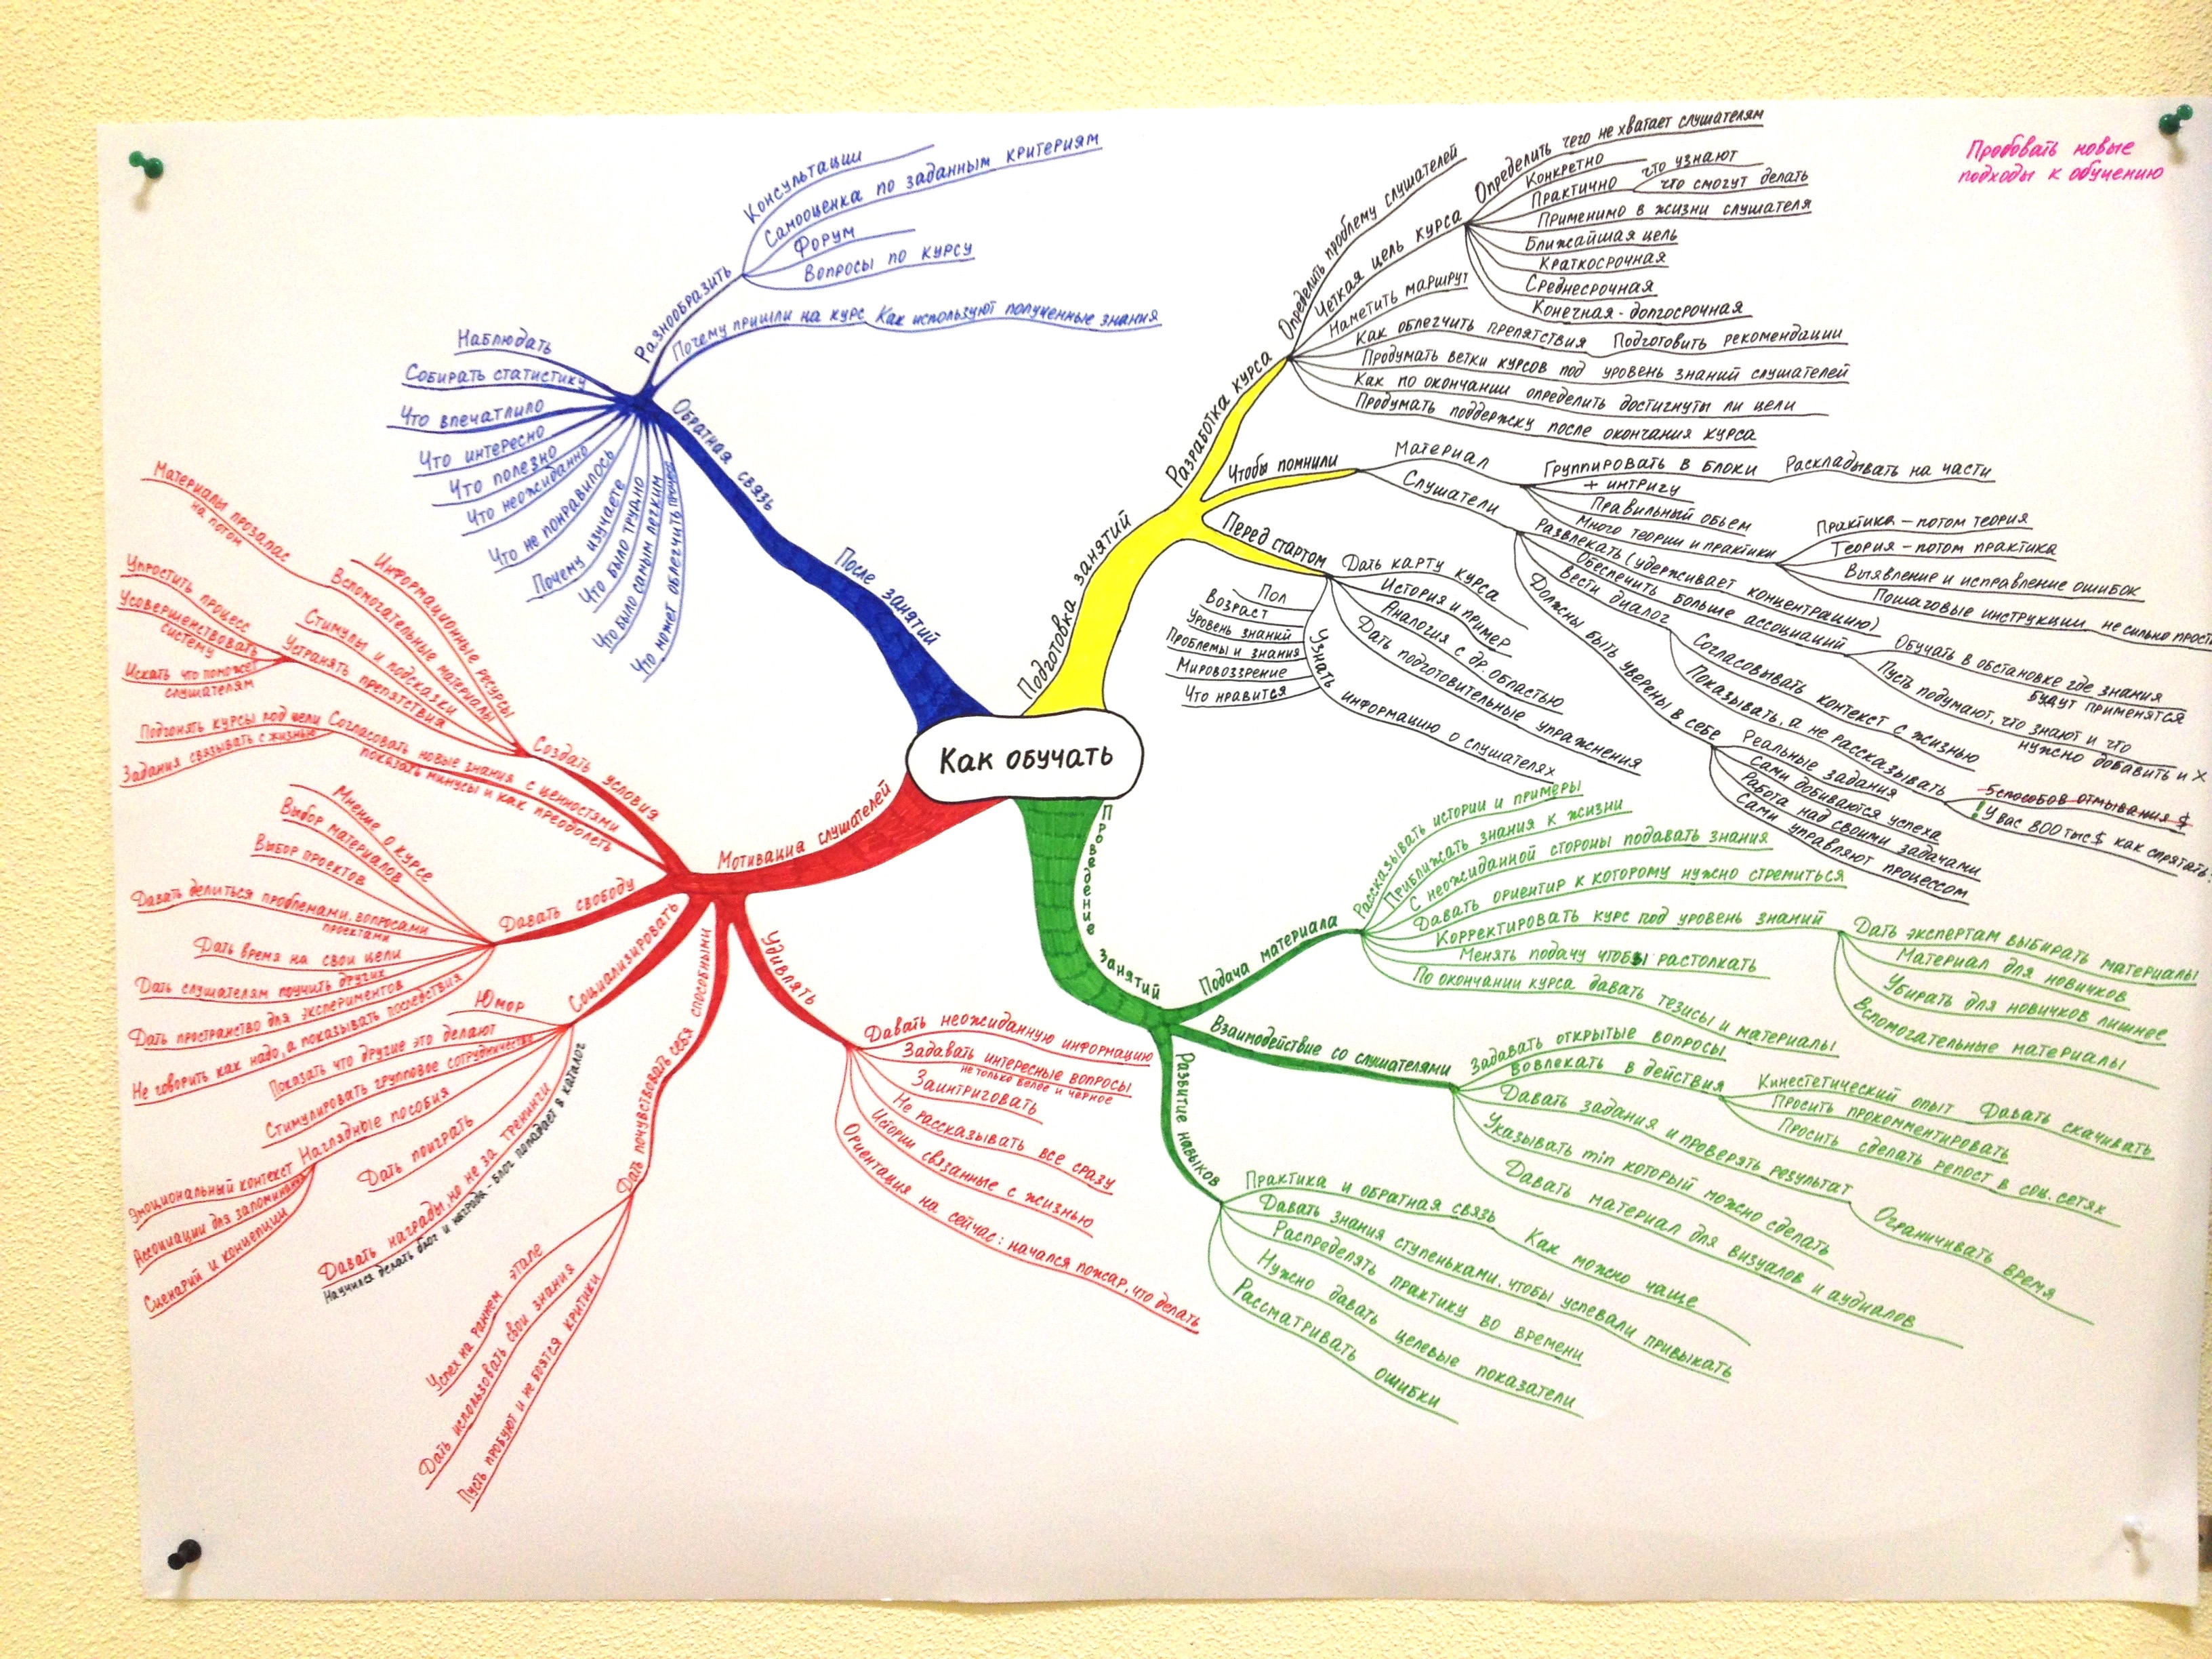 Пробовать новые
подходы к обучению
Как обучать
Подготовка занятий
Разработка курса
Определить проблему слушателей
Четкая цель курса
Определить чего не хватает слушателям
Конкретно
Практично
что узнают
что смогут делать
Применимо в жизни слушателя
Ближайшая цель
Краткосрочная
Среднесрочная
Конечная - долгосрочная
Наметить маршрут
Как облегчить препятствия
Подготовить рекомендации
Продумать ветки курсов под уровень знаний слушателей
Как по окончании определить достигнуты ли цели
Продумать поддержку после окончания курса
Чтобы помнили
Материал
Группировать в блоки
Раскладывать на части
+ интригу
Правильный обьем
Много теории и практики
Практика - потом теория
Теория - потом практика
Выявление и исправление ошибок
Пошаговые инструкции не сильно
Слушатели
Развлекать (удерживает концентрацию)
Обеспечить больше ассоциаций
Обучать в обстановке где знания
будут применятся
Пусть подумают, что знают и что
нужно добавить и х
Вести диалог
Согласовывать контекст с жизнью
Показывать, а не рассказывать
5 способов отмывания $
! У вас 800 тыс $ как спрятать
Должны быть уверены в себе
Реальные задания
Сами добиваются успеха
Работа над своими задачами
Сами управляют процессом
Перед стартом
Дать карту курса
История и пример
Аналогия с др областью
Дать подготовительные упражнения
Узнать информацию о слушателях
Пол
Возраст
Уровень знаний
Проблемы и знания
Мировоззрение
Что нравится
Проведение занятий
Подача материала
Рассказывать истории и примеры
Приближать знания к жизни
С неожиданной стороны подавать знания
Давать ориентир к которому нужно стремиться
Корректировать курс под уровень знаний
Дать экспертам выбирать материалы
Материал для новичков
Убирать для новичков лишнее
Вспомогательные материалы
Менять подачу чтобы растолкать
По окончании курса давать тезисы и материалы
Взаимодействие со слушателями
Задавать открытые вопросы
Вовлекать в действия
Кинестетический опыт
Давать скачивать
Просить прокомментировать
Просить сделать репост в соц. сетях
Давать задания и проверять результат
Ограничивать время
Указывать min который можно сделать
Давать материал для визуалов и аудиалов
Развитие навыков
Практика и обратная связь
Как можно чаще
Давать знания ступеньками, чтобы успевали привыкать
Распределять практику во времени
Нужно давать целевые показатели
Рассматривать ошибки
Мотивация слушателей
Удивлять
Давать неожиданную информацию
Задавать интересные вопросы
не только белое и черное
Заинтриговать
Не рассказывать все сразу
Истории связанные с жизнью
Ориентация на сейчас: начался пожар, что делать
Дать почувствовать себя способными
Успех на раннем этапе
Дать использовать свои знания
Пусть пробуют и не боятся критики
Социализировать
Юмор
Показать что другие это делают
Стимулировать групповое сотрудничество
Наглядные пособия
Эмоциональный контекст
Ассоциации для запоминания
Сценарий и концепции
Дать поиграть
Давать награды, но не за тренинги
Научился делать блог и награда - блог попадает в каталог
Давать свободу
Мнение о курсе
Выбор материалов
Выбор проектов
Давать делиться проблемами, вопросами
проектами
Дать время на свои цели
Дать слушателям поучить других
Дать пространство для экспериментов
Не говорить как надо, а показывать последствия
Согласовать новые знания с ценностями
показать минусы и как преодолеть
Подгонять курсы под цели
Задания связывать с жизнью
Создать условия
Информационные ресурсы
Вспомогательные материалы
Материалы прозапас
на потом
Стимулы и подсказки
Устранять препятствия
Упростить процесс
Усовершенствовать
систему
Искать что поможет
слушателям
После занятий
Обратная связь
Разнообразить
Консультации
Самооценка по заданным критериям
Форум
Вопросы по курсу
Почему пришли на курс
Как используют полученные знания
Наблюдать
Собирать статистику
Что впечатлило
Что интересно
Что полезно
Что неожиданно
Что не понравилось
Почему изучаете
Что было трудно
Что было самым легким
Что может облегчить